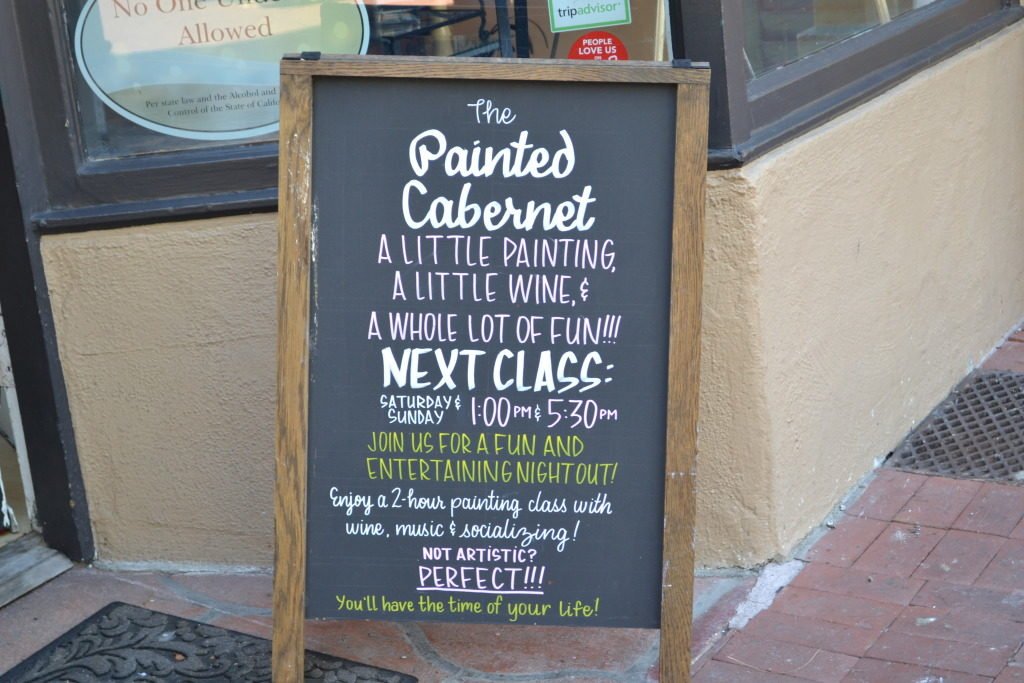 No One Unde
Allowed
Per state law and the Alcohol and
Control of the State of Califo
tripadvisor
PEOPLE
LOVE US
The
Painted
Cabernet
A LITTLE PAINTING,
A LITTLE WINE, &
A WHOLE LOT OF FUN!!!
NEXT CLASS:
SATURDAY & SUNDAY 1:00 PM & 5:30 PM
JOIN US FOR A FUN AND
ENTERTAINING NIGHT OUT!
Enjoy a 2-hour painting class with
wine, music & socializing!
NOT ARTISTIC?
PERFECT!!!
You'll have the time of your life!